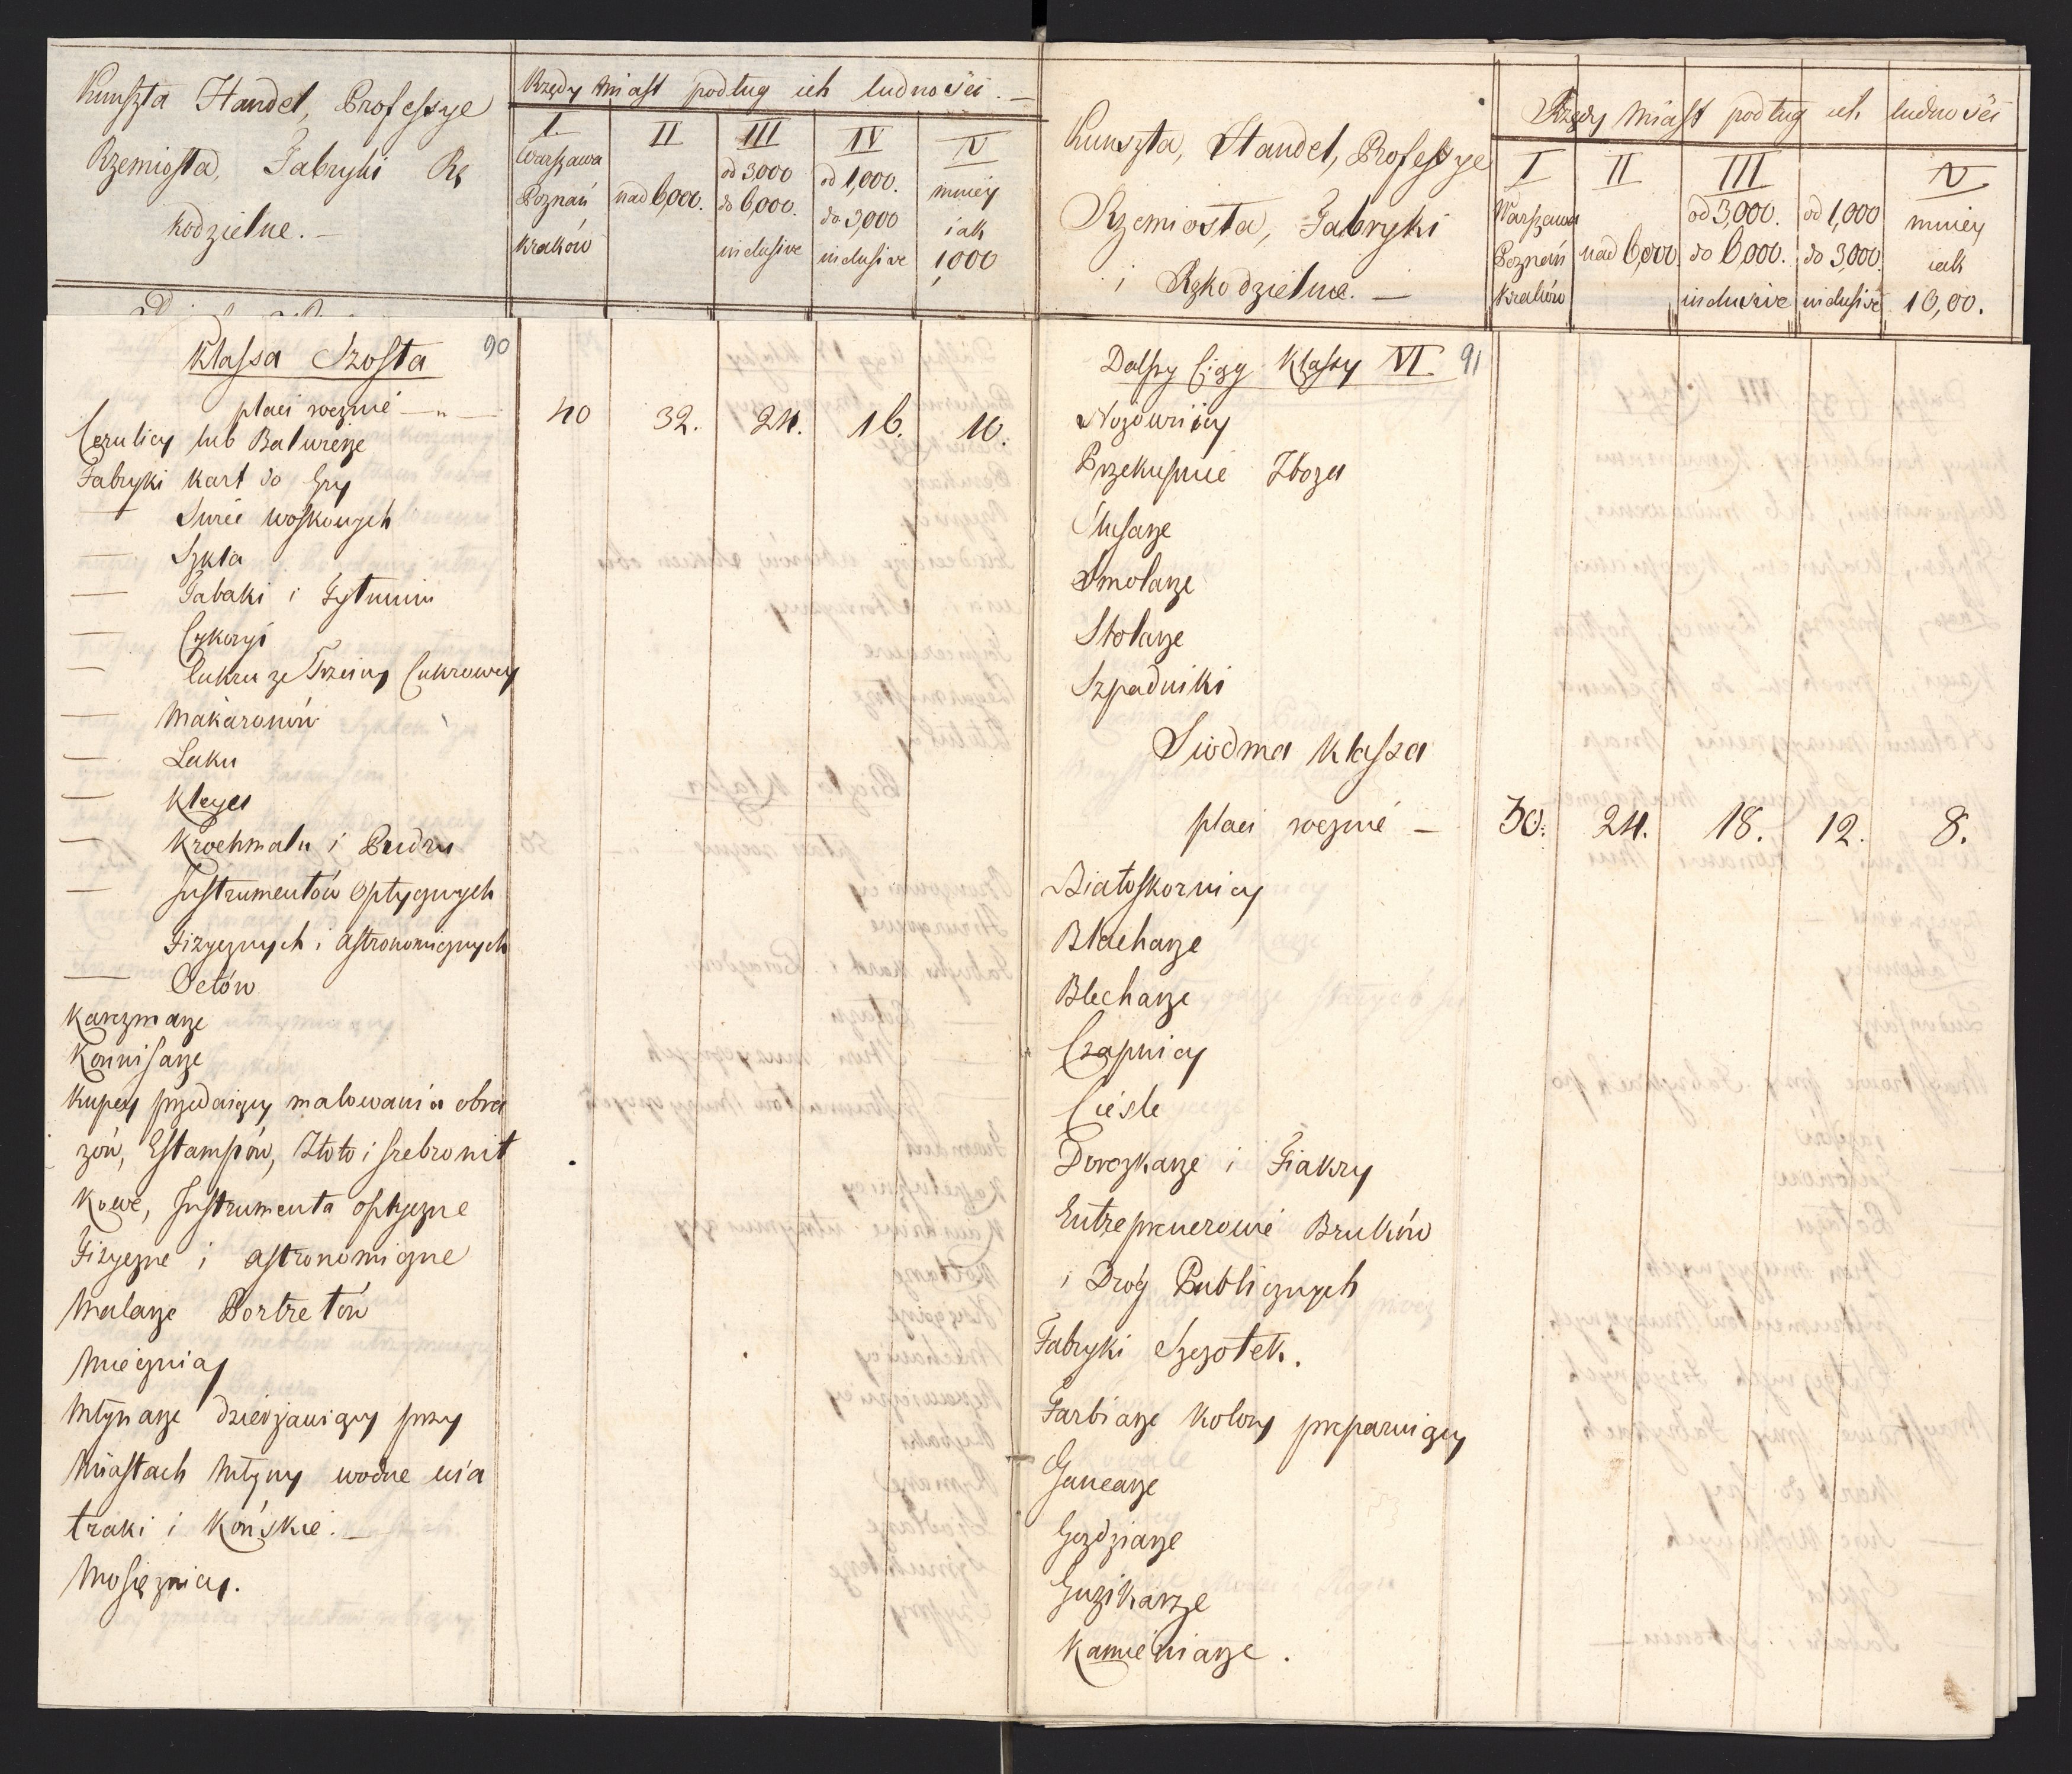 Kunszta Handel, Professye
Rzemiosła, Fabryki Rę
kodzielne. –
Rzędy Miast podług ich ludności. –
I. II III IV V
Warszawa
Poznań
Kraków
nad 6,000.
od 3000
do 6,000.
inclusive
od 1,000.
do 3,000
inclusive
mniey
iak
1000
Klassa Szosta 90
płaci rocznie — " — 40 32. 24. 16. 10.
Cerulicy lub Balwierze
Fabryki Kart do Gry
— Swiec Woskowych
— Szkła
— Tabaki i Tytuniu
— Cykoryi
— Cukru ze Trzciny Cukrowey
— Makaronów
— Laku
— Kleyu
— Krochmalu i Pudru
— Instrumentów Optycznych
Fizycznych i Astronomicznych
— Octów
Karczmarze
Konnisarze
Kupcy przedaiący malowania obra
zów, Estampów, Złoto i srebro nit
kowe, Instrumenta optyczne
Fizyczne i astronomiczne
Malarze Portretów
Miecznicy
Młynarze dzierzawiący przy
Miastach Młyny wodne wia
traki i Końskie. –
Mosięznicy.
Kunszta, Handel, Professye
Rzemiosła, Fabryki
i Rękodzielne. –
Rzędy Miast podług ich ludności
I II III V
Warszawa
Poznań
Kraków
nad 6,000.
od 3,000.
do 6,000.
inclusive
od 1,000
do 3,000.
inclusive
mniey
iak
10,00.
Dalszy Ciąg Klassy VI 91
Nozownicy
Przekupnie Zboza
Slusarze
Smolarze
Stolarze
Szpadniki
Siodma Klassa
płaci rocznie – 30. 24. 18. 12. 8.
Białoskornicy
Blacharze
Blecharze
Czapnicy
Cieśle
Dorozkarze i Fiakry
Entreprenerowie Bruków
i Dróg Publicznych
Fabryki Szczotek.
Farbiarze Kolory preparuiący
Garncarze
Gozdziarze
Guzikarze
Kamieniarze.